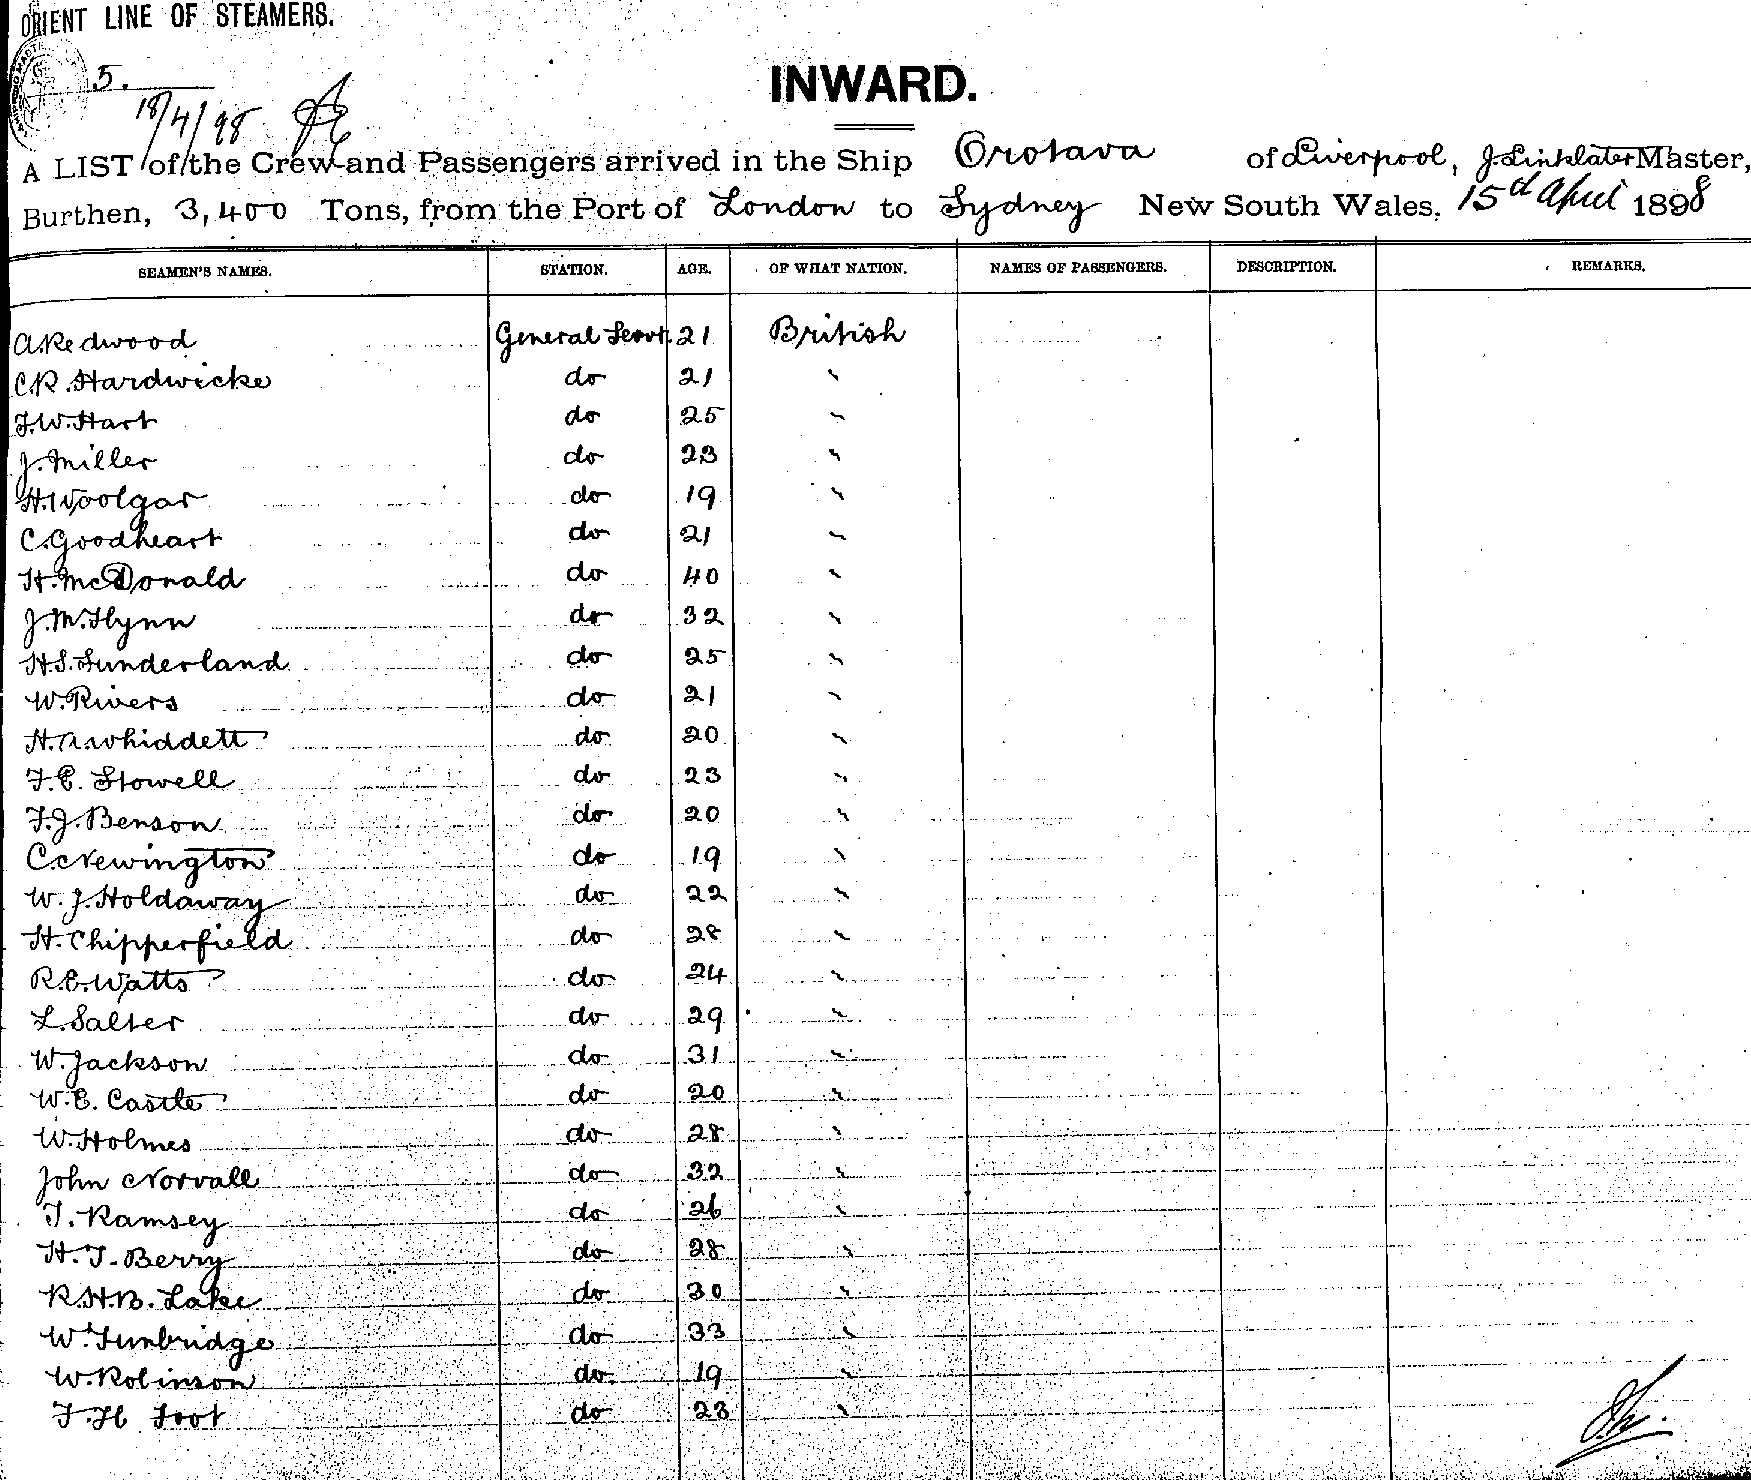 ORIENT LINE OF STEAMERS.
5.
INWARD.
18/4/98
A LIST of the Crew and Passengers arrived in the Ship Orotava of Liverpool, J. Linklater Master,
Burthen, 3,400 Tons, from the Port of London to Sydney New South Wales, 15d April 1898
SEAMEN'S NAMES. STATION. AGE. OF WHAT NATION. NAMES OF PASSENGERS. DESCRIPTION. REMARKS.
A. Redwood General Servt. 21 British
C.R. Hardwicke do 21 "
F.W. Hart do 25 "
J. Miller do 23 "
H. Woolgar do 19 "
C. Goodheart do 21 "
H. McDonald do 40 "
J.M. Flynn do 32 "
H.S. Sunderland do 25 "
W. Rivers do 21 "
H.A. Whiddett do 20 "
F.E. Stowell do 23 "
F.J. Benson do 20 "
C. Newington do 19 "
W.J. Holdaway do 22 "
H. Chipperfield do 28 "
R.E. Watts do 24 "
L. Salter do 29 "
W. Jackson do 31 "
W.E. Castle do 20 "
W. Holmes do 28 "
John Norvall do 32 "
T. Ramsey do 26 "
H.T. Berry do 28 "
R.H.B. Lake do 30 "
W. Tunbridge do 33 "
W. Robinson do 19 "
F.H. Foot do 23 "